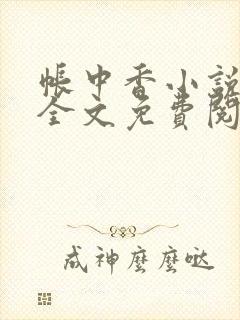 帳中香小說
全文免費閱
成神麼麼噠